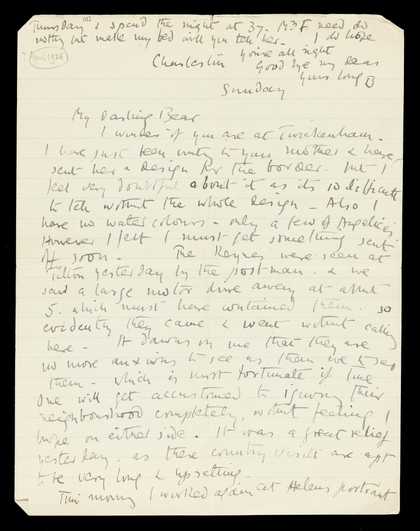 Thursday & spend the night at 37. Mrs F need do
nothing but make my bed will you tell her. I do hope
you're all right
Charleston Good bye my dear
Your loving B
Sunday
My Darling Bear
I wonder if you are at Twickenham.
I have just been writing to your mother & have
sent her a design for the border. but I
feel very doubtful about it as its so difficult
to tell without the whole design - Also I
have no water colours - only a few of Angelica's
However I felt I must get something sent
off soon - The Keynes were seen at
Tilton yesterday by the postman. & we
saw a large motor drive away at about
5. which must have contained them. so
evidently they came & went without calling
here - It dawns on me that they are
no more anxious to see us than we to see
them - which is most fortunate if true
One will get accustomed to ignoring their
neighbourhood completely, without feeling I
hope on either side. It was a great relief
yesterday. as these country visits are apt
to be very long & upsetting.
This morning I worked again at Helens portrait